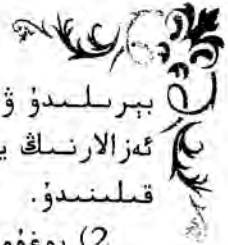 بېرىلىدۇ ۋ
ئەزالارنىڭ ي
قىلىنىدۇ.
2) يوغۇم